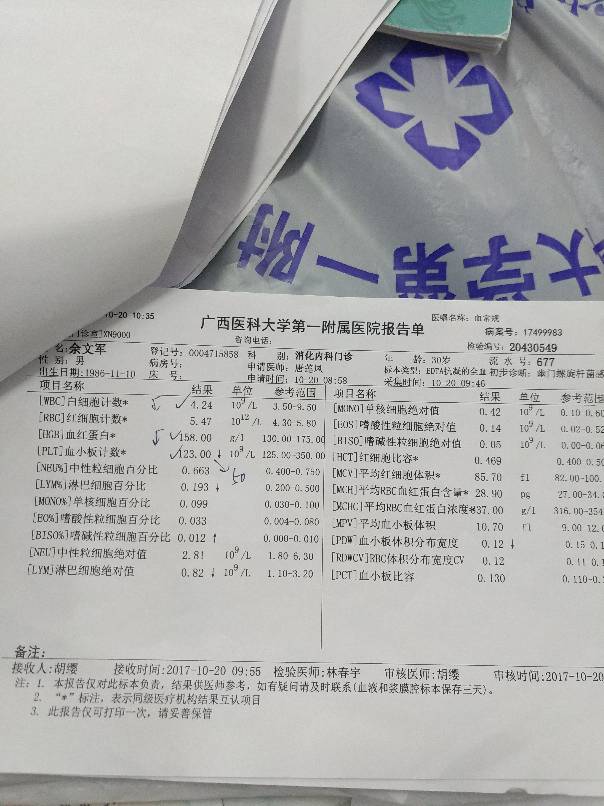 大学第一附
10-20 10:35
广西医科大学第一附属医院报告单
医嘱名称: 血常规
门诊室]XN9000
咨询电话:
病案号: 17499983
检验编号: 20430549
名: 余文军
登记号: 0004715858
科 别: 消化内科门诊
年 龄: 30岁
流 水 号: 677
性 别: 男
病房号:
申请医师: 唐
标本类型: EDTA抗凝的全血
初步诊断: 幽门螺旋杆菌感
出生日期:1986-11-10
床 号:
申请时间: 10-20 08:58
采集时间: 10-20 09:46
项目名称 结果 单位 参考范围 项目名称 结果 单位 参考范围
[WBC]白细胞计数* 4.24 10^9/L 3.50-9.50 [MONO]单核细胞绝对值 0.42 10^9/L 0.10-0.60
[RBC]红细胞计数* 5.47 10^12/L 4.30-5.80 [EOS]嗜酸性粒细胞绝对值 0.14 10^9/L 0.02-0.52
[HGB]血红蛋白* 158.00 g/l 130.00-175.00 [BISO]嗜碱性粒细胞绝对值 0.05 10^9/L 0.00-0.06
[PLT]血小板计数* 123.00 ↓ 10^9/L 125.00-350.00 [HCT]红细胞比容* 0.469 0.400-0.50
[NEU%]中性粒细胞百分比 0.663 50 0.400-0.750 [MCV]平均红细胞体积* 85.70 fl 82.00-100.
[LYM%]淋巴细胞百分比 0.193 ↓ 0.200-0.500 [MCH]平均RBC血红蛋白含量* 28.90 pg 27.00-34.
[MONO%]单核细胞百分比 0.099 0.030-0.100 [MCHC]平均RBC血红蛋白浓度* 37.00 g/l 316.00-354
[EO%]嗜酸性粒细胞百分比 0.033 0.004-0.080 [MPV]平均血小板体积 10.70 fl 9.00-12.0
[BISO%]嗜碱性粒细胞百分比 0.012 ↑ 0.000-0.010 [PDW]血小板体积分布宽度 0.12 ↓ 0.15-0.1
[NEU]中性粒细胞绝对值 2.81 10^9/L 1.80-6.30 [RDWCV]RBC体积分布宽度CV 0.12 0.11-0.1
[LYM]淋巴细胞绝对值 0.82 ↓ 10^9/L 1.10-3.20 [PCT]血小板比容 0.130 0.110-0.
备注:
接收人: 胡缨 接收时间: 2017-10-20 09:55 检验医师: 林春宇 审核医师: 胡缨 审核时间: 2017-10-20
注: 1. 本报告仅对此标本负责, 结果供医师参考, 如有疑问请及时联系(血液和浆膜腔标本保存三天)。
2. “*”标注, 表示同级医疗机构结果互认项目
3. 此报告仅可打印一次, 请妥善保管